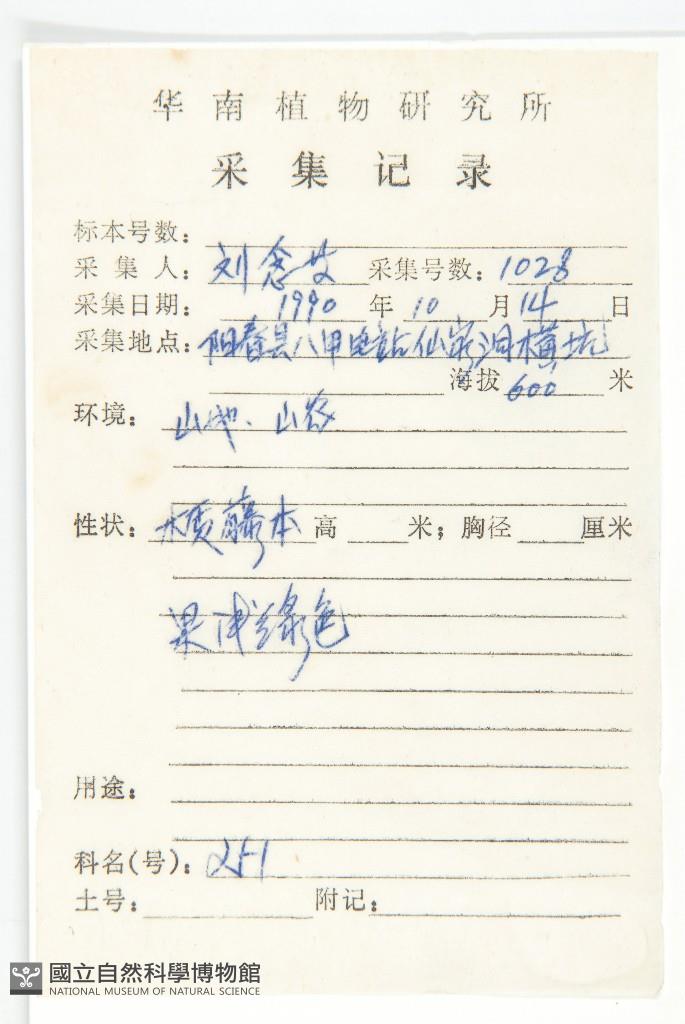 华南植物研究所
采集记录
标本号数：
采集人：刘念 采集号数：1028
采集日期：1990年10月14日
采集地点：阳春县八甲电站仙家洞横坑
海拔600米
环境：山地、山谷
性状：木质藤本 高 米；胸径 厘米
果 绿色
用途：
科名(号)：251
土号： 附记：
國立自然科學博物館
NATIONAL MUSEUM OF NATURAL SCIENCE